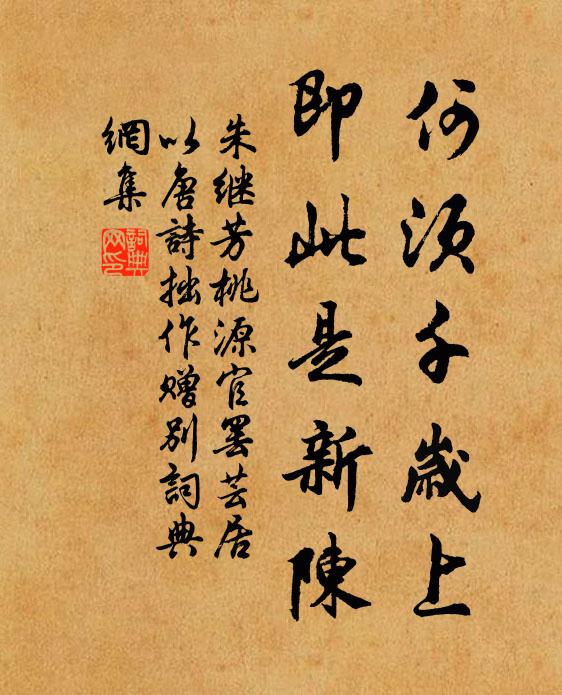 何须千歲上
即此是新陳
朱继芳桃源官罢芸居
以唐詩拙作赠别詞典
網集
詞典網印